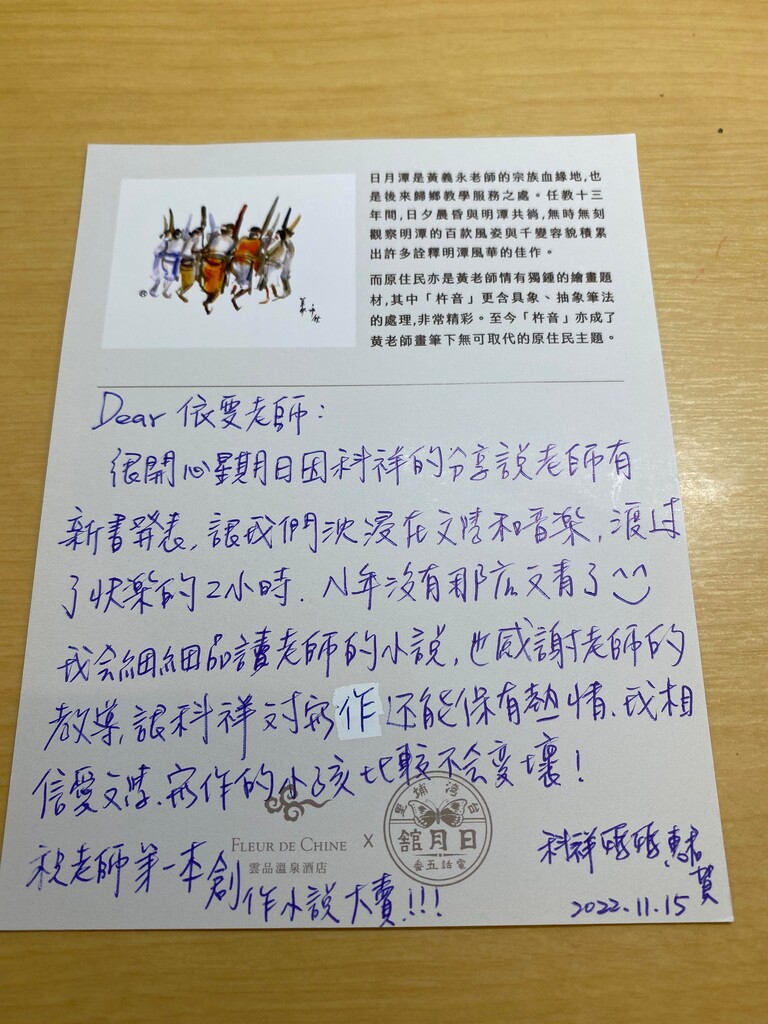 日月潭是黃義永老師的宗族血緣地,也
是後來歸鄉教學服務之處。任教十三
年間,日夕晨昏與明潭共徜,無時無刻
觀察明潭的百款風姿與千變容貌積累
出許多詮釋明潭風華的佳作。
而原住民亦是黃老師情有獨鍾的繪畫題
材,其中「杵音」更含具象、抽象筆法
的處理,非常精彩。至今「杵音」亦成了
黃老師畫筆下無可取代的原住民主題。
Dear 依雯老師：
很開心星期日因科祥的分享說老師有
新書發表,讓我們沈浸在文情和音楽,渡过
了快楽的2小時.八年沒有那広文青了
我会細細品讀老師的小說,也感謝老師的
教導,讓科祥对寫作还能保有熱情.我相
信愛文學.寫作的小孩比較不会变壞!
祝老師第一本創作小說大賣!!!
科祥媽媽
2022.11.15
FLEUR DE CHINE
雲品溫泉酒店
X
台灣埔里
日月館
電話五番